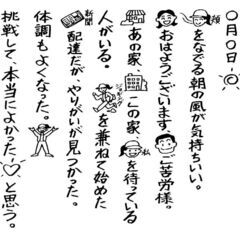 〇月〇日
頬をなでる朝の風が気持ちいい。
おはようございます、ご苦労様。
あの家、この家、私を待っている
人がいる。ジョギングを兼ねて始めた
新聞配達だが、やりがいが見つかった。
体調もよくなった。
挑戦して本当によかった…と思う。